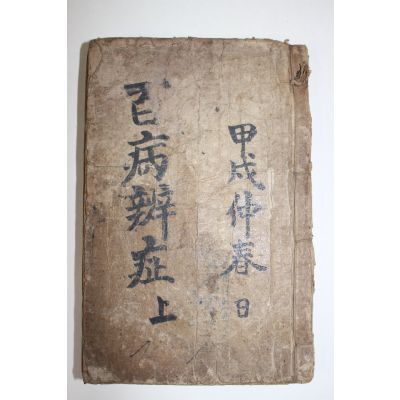 甲戌仲春日
病辨症 上